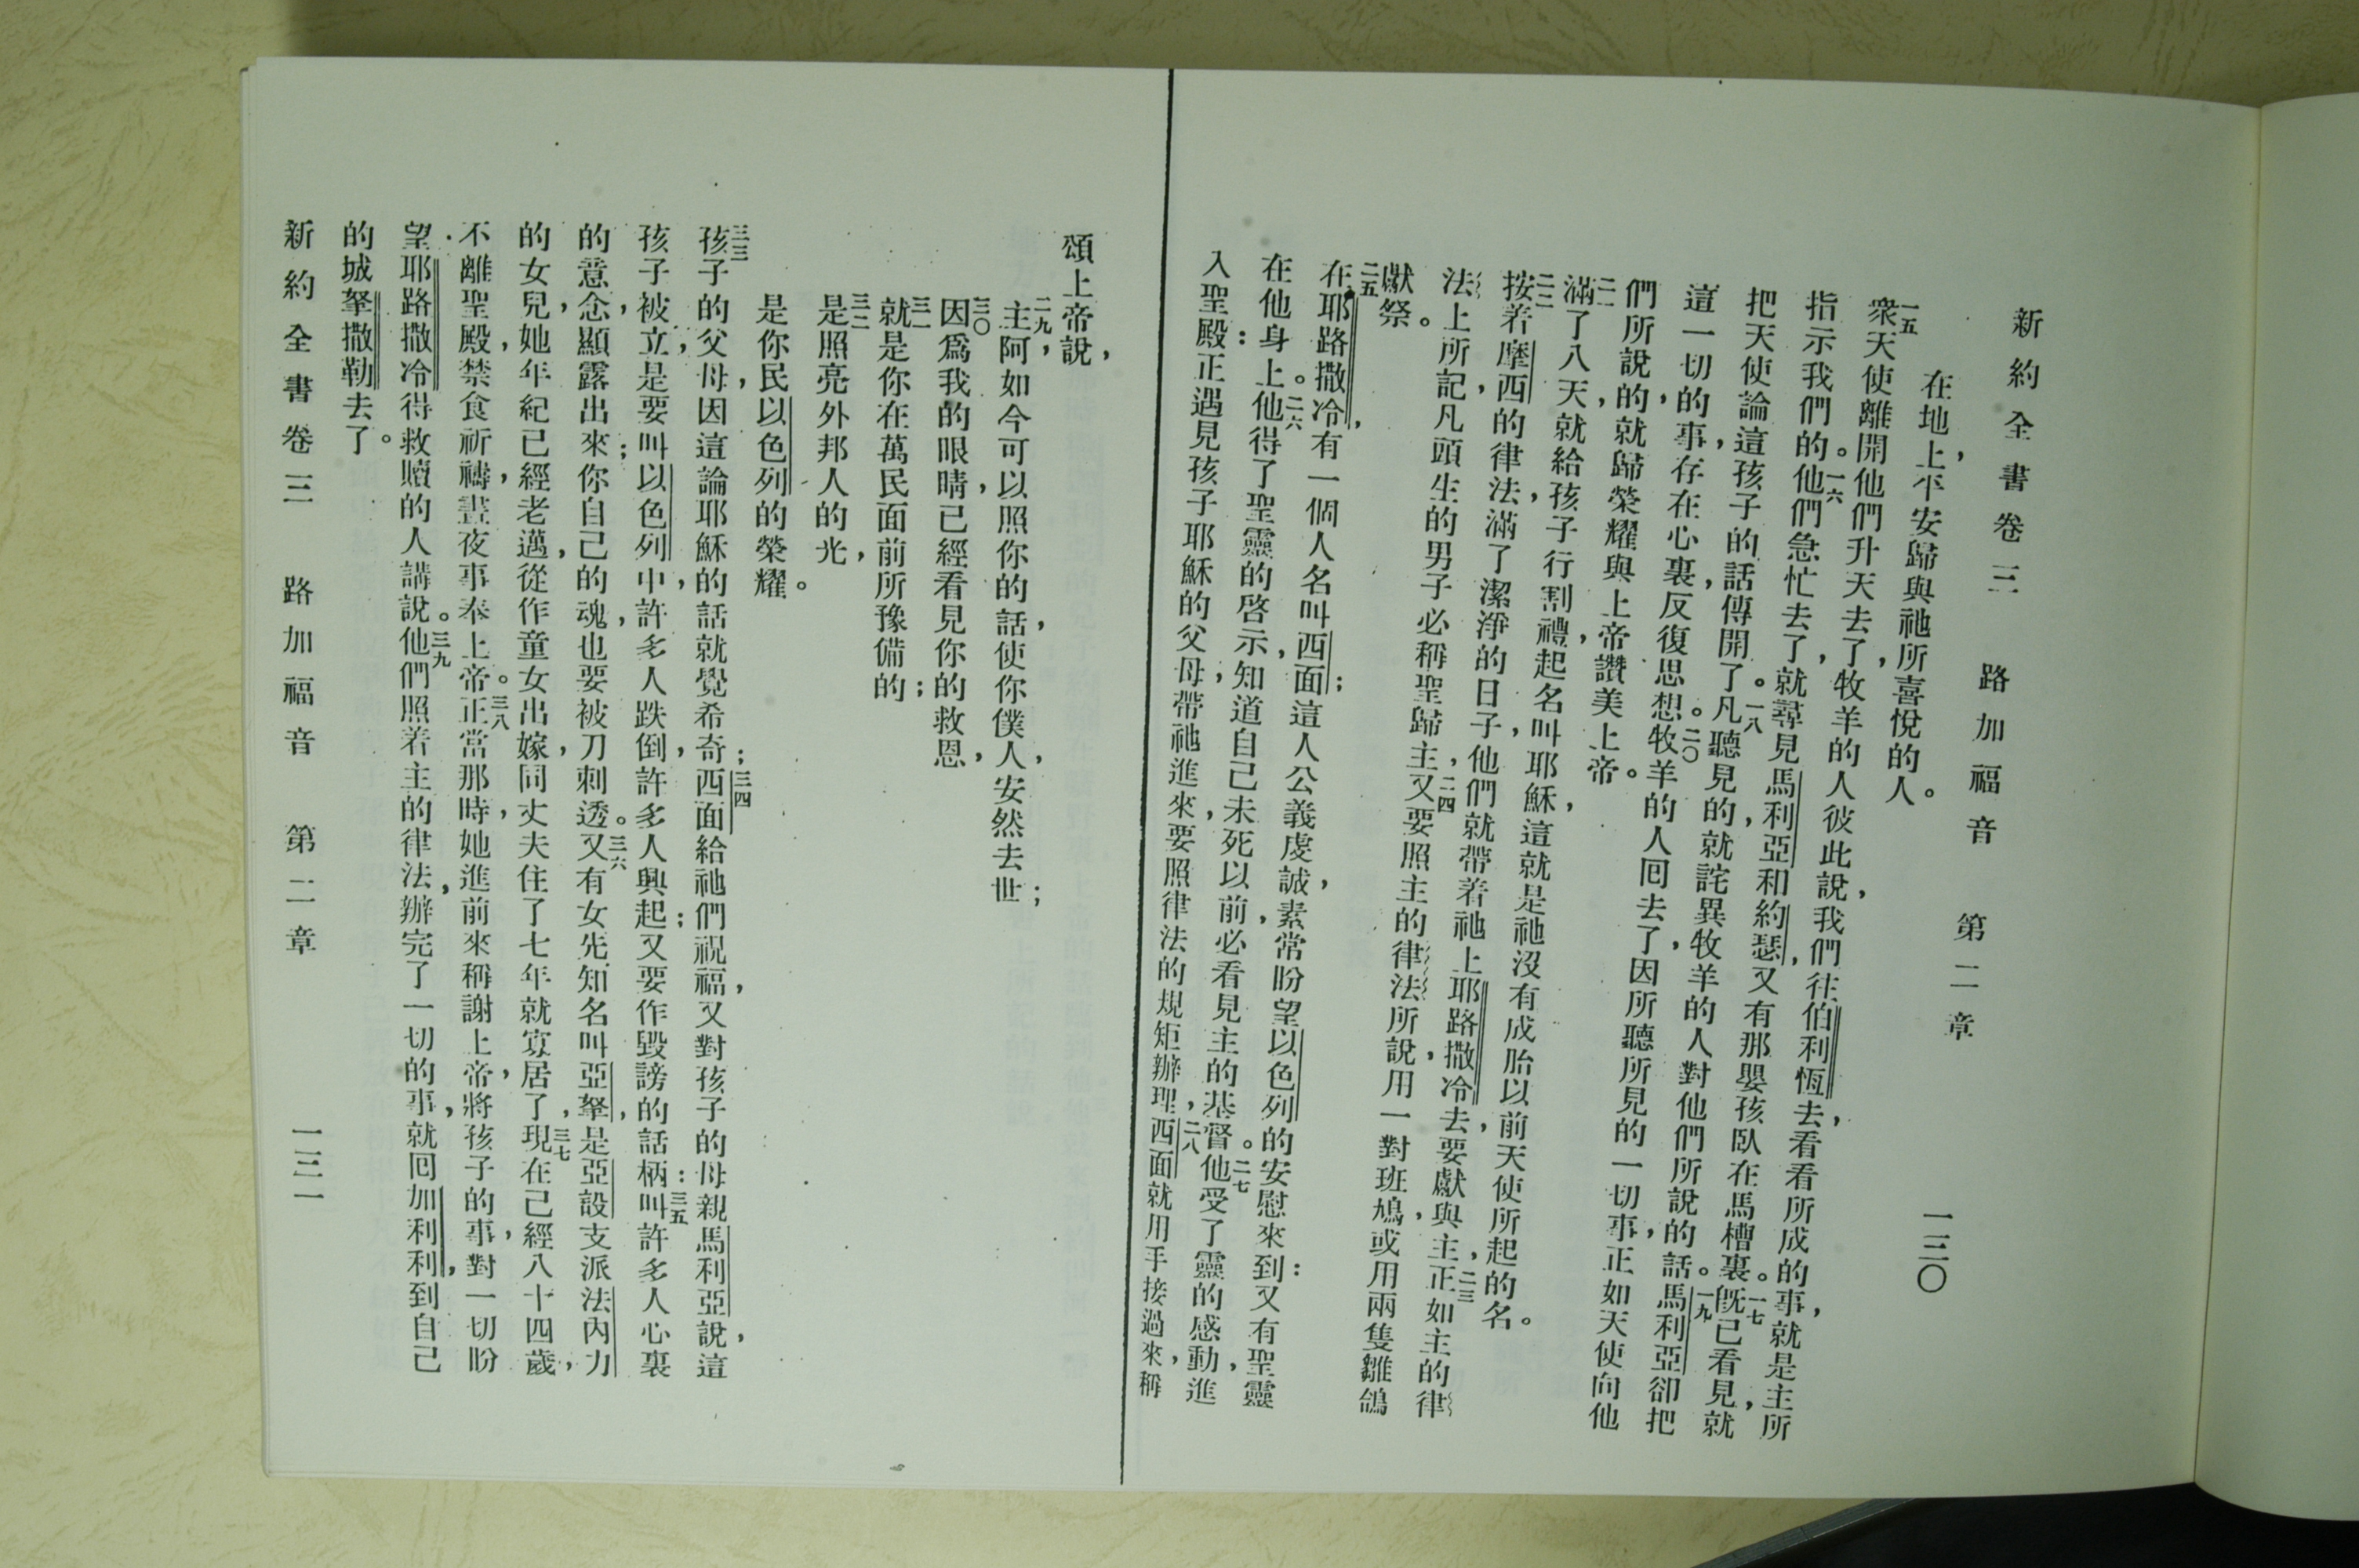 新約全書卷三　路加福音　第二章　一三〇
在地上、平安歸與祂所喜悅的人。
一五衆天使離開他們升天去了、牧羊的人彼此說、我們往伯利恆去、看看所成的事、就是主所
指示我們的。一六他們急忙去了、就尋見馬利亞和約瑟、又有那嬰孩臥在馬槽裏。一七旣已看見、就
把天使論這孩子的話傳開了。一八凡聽見的、就詫異牧羊的人對他們所說的話。一九馬利亞卻把
這一切的事、存在心裏、反復思想。二〇牧羊的人回去了、因所聽所見的一切事、正如天使向他
們所說的、就歸榮耀與上帝讚美上帝。
二一滿了八天、就給孩子行割禮、起名叫耶穌、這就是祂沒有成胎以前、天使所起的名。
二二按着摩西的律法、滿了潔淨的日子、他們就帶着祂上耶路撒冷去、要獻與主、二三正如主的律
法上所記、凡頭生的男子、必稱聖歸主、二四又要照主的律法所說、用一對班鳩、或用兩隻雛鴿
獻祭。
二五在耶路撒冷、有一個人名叫西面；這人公義虔誠、素常盼望以色列的安慰來到：又有聖靈
在他身上。二六他得了聖靈的啓示、知道自己未死以前、必看見主的基督。二七他受了靈的感動、進
入聖殿：正遇見孩子耶穌的父母、帶祂進來、要照律法的規矩辦理、二八西面就用手接過來、稱
頌上帝說、
二九主阿、如今可以照你的話、使你僕人、安然去世；
三〇因爲我的眼睛、已經看見你的救恩、
三一就是你在萬民面前所豫備的；
三二是照亮外邦人的光、
是你民以色列的榮耀。
三三孩子的父母、因這論耶穌的話就覺希奇；三四西面給祂們祝福、又對孩子的母親馬利亞說、這
孩子被立、是要叫以色列中、許多人跌倒、許多人興起；又要作毀謗的話柄：三五叫許多人心裏
的意念、顯露出來；你自己的魂、也要被刀刺透。三六又有女先知名叫亞拏、是亞設支派法內力
的女兒、她年紀已經老邁、從作童女出嫁、同丈夫住了七年就寡居了、三七現在已經八十四歲、
不離聖殿、禁食祈禱、晝夜事奉上帝。三八正當那時、她進前來稱謝上帝、將孩子的事、對一切盼
望耶路撒冷得救贖的人講說。三九他們照着主的律法、辦完了一切的事、就回加利利、到自己
的城拏撒勒去了。
新約全書卷三　路加福音　第二章　一三一